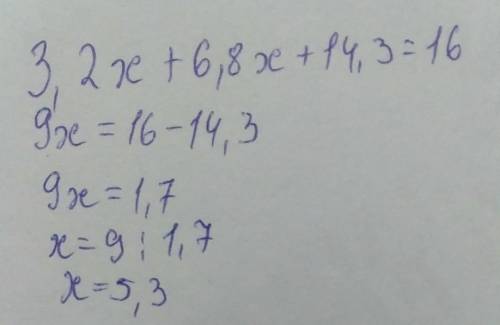 3,2x + 6,8x + 14,3 = 16
9x = 16 - 14,3
9x = 1,7
x = 9 : 1,7
x = 5,3